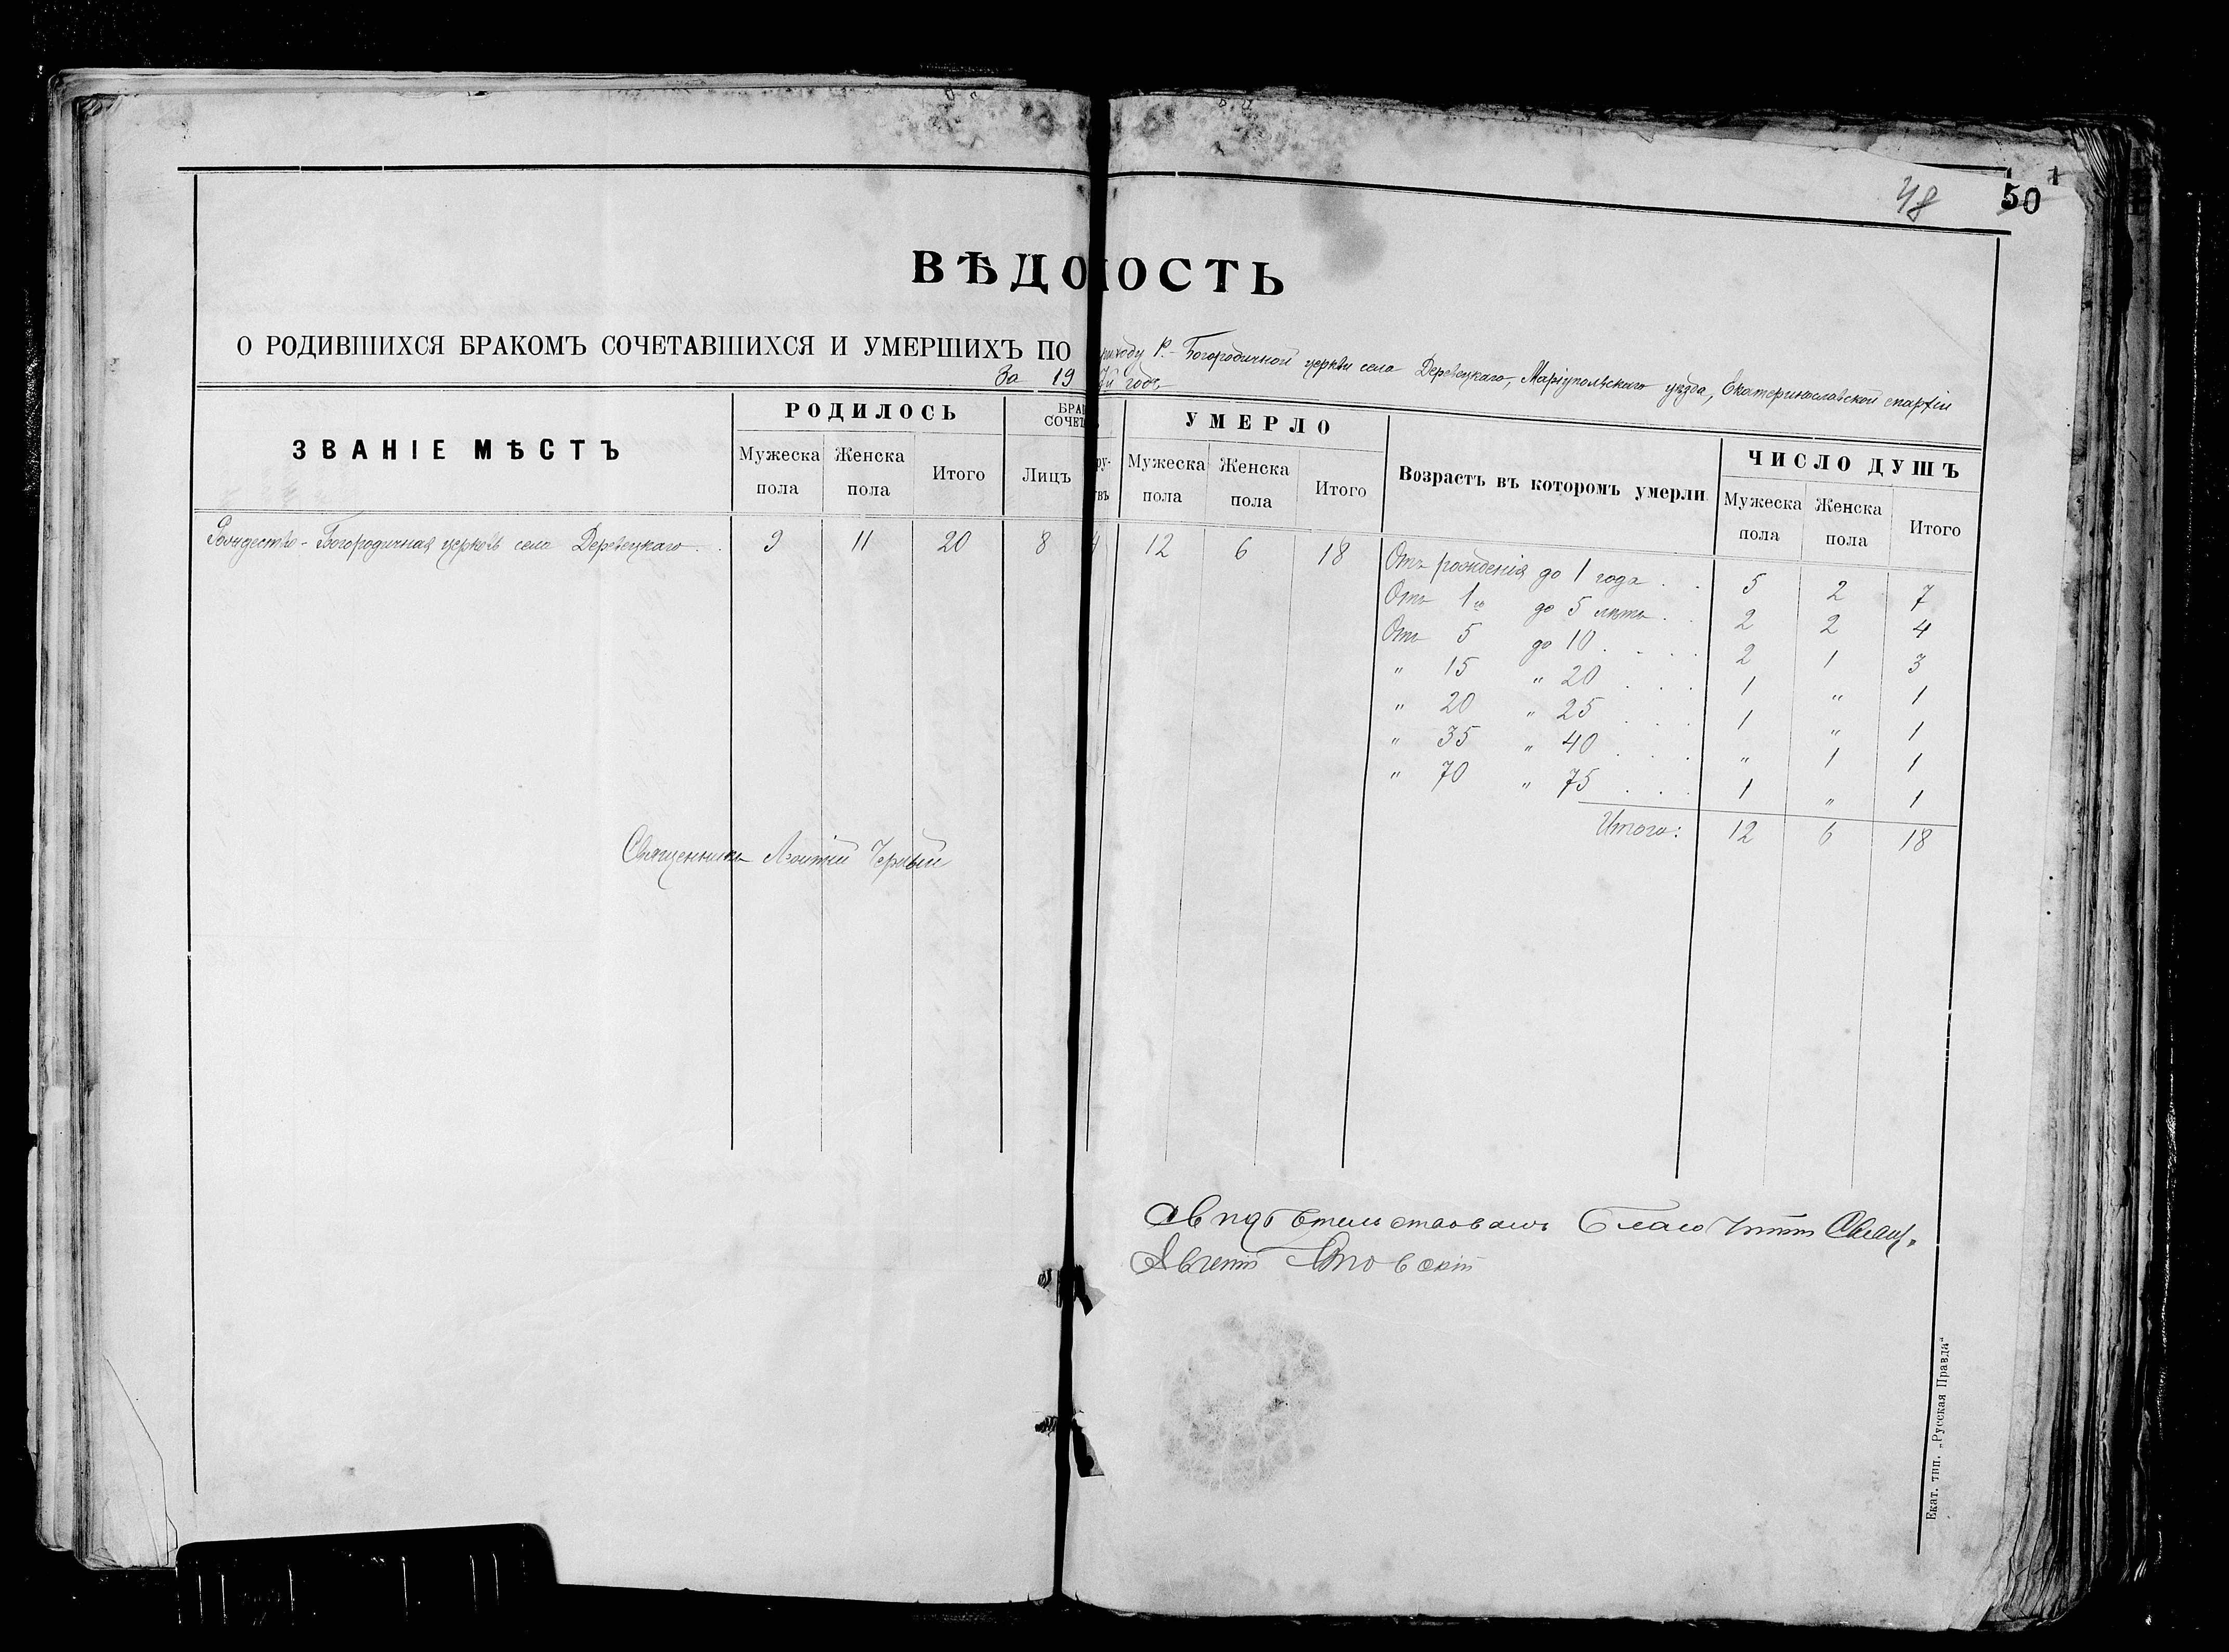 48 50
ВѢДО ОСТЬ
О РОДИВШИХСЯ БРАКОМЪ СОЧЕТАВШИХСЯ И УМЕРШИХЪ ПО приходу Р.-Богородичной церкви села Деревецкаго, Маріупольскаго уѣзда, Екатеринославской епархіи
За 19 7й годъ
ЗВАНІЕ МѢСТЪ
РОДИЛОСЬ
Мужеска пола
Женска пола
Итого
БРА
СОЧЕТ
Лицъ
УМЕРЛО
Мужеска пола
Женска пола
Итого
Возрастъ въ которомъ умерли
ЧИСЛО ДУШЪ
Мужеска пола
Женска пола
Итого
Рождество-Богородичная церковь села Деревецкаго . . 9 11 20 8 4 12 6 18
Отъ рожденія до 1 года . . 5 2 7
Отъ 1го до 5 лѣтъ . . 2 2 4
Отъ 5 до 10 . . . . 2 1 3
" 15 " 20 . . . 1 " 1
" 20 " 25 . . . 1 " 1
" 35 " 40 . . . " 1 1
" 70 " 75 . . . 1 " 1
Итого: 12 6 18
Священникъ Леонтій Черный
Свидѣтельствовалъ Благочинный Свящ.
Евгеній
Екат. тип. „Русская Правда“